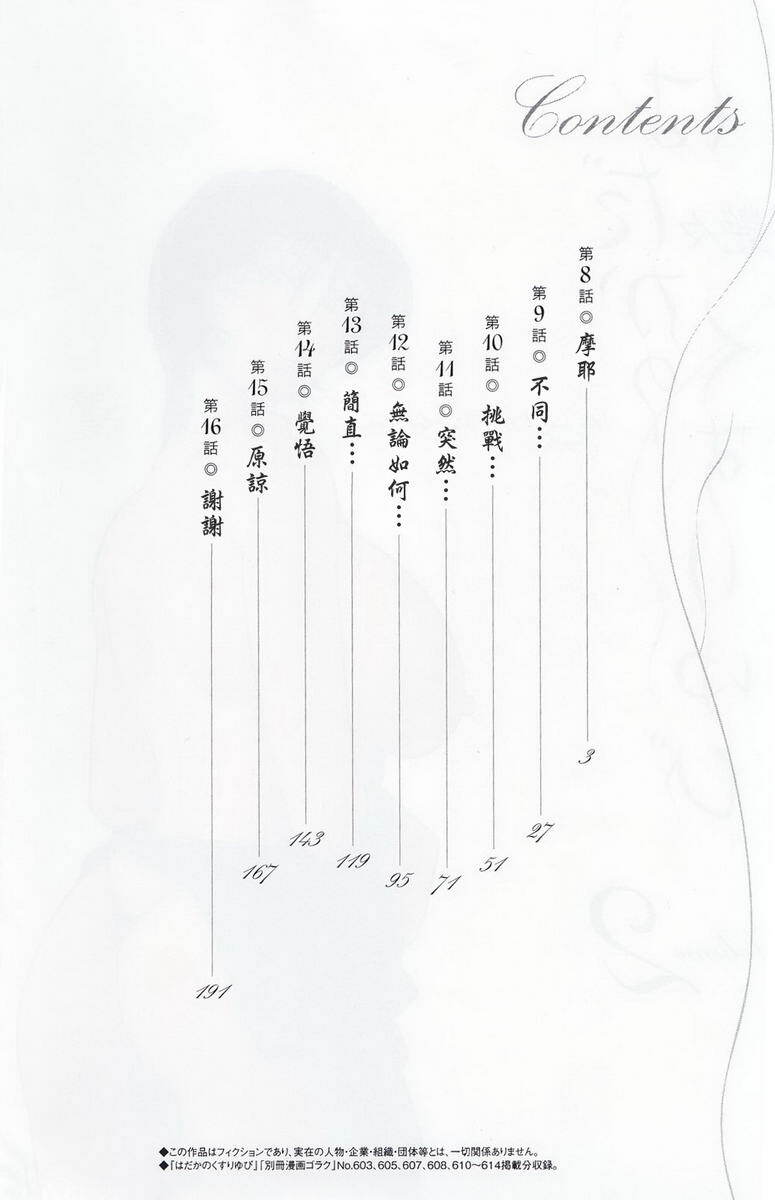 Contents
第8話◎摩耶 3
第9話◎不同… 27
第10話◎挑戰… 51
第11話◎突然… 71
第12話◎無論如何… 95
第13話◎簡直… 119
第14話◎覺悟 143
第15話◎原諒 167
第16話◎謝謝 191
◆この作品はフィクションであり、実在の人物・企業・組織・団体等とは、一切関係ありません。
◆「はだかのくすりゆび」「別冊漫画ゴラク」No.603、605、607、608、610〜614掲載分収録。